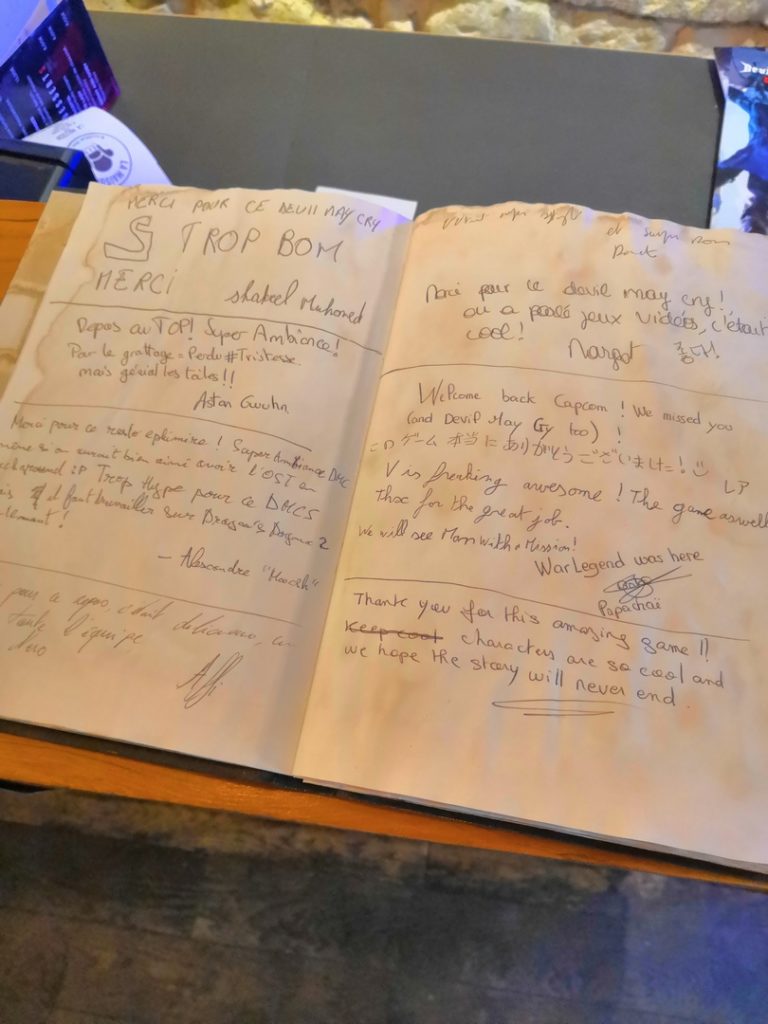 MERCI POUR CE DEVIL MAY CRY
S TROP BOM
MERCI
shakeel Muhomed
Repas au TOP! Super Ambiance!
Par le grattage = Perdu #Tristesse.
mais génial les toiles!!
Merci pour ce resto éphémère ! Super Ambiance DMC
même si on aurait bien aimé avoir l'OST en
background :P Trop Hype pour ce DMC5
il faut travailler sur Dragon's Dogma 2
— Alexandre
pour ce repas, c'était délicieux,
toute l'équipe
et super
Merci pour ce devil may cry!
on a parlé jeux vidéos, c'était
cool!
Margot
Welcome back Capcom ! We missed you
(and Devil May Cry too) !
このゲーム本当にありがとうございました!
レア
V is freaking awesome ! The game aswell
Thxx for the great job.
We will see Man with a Mission!
WarLegend was here
Papachaï
Thank you for this amazing game !!
Keep cool characters are so cool and
we hope the story will never end.
LA MAISON